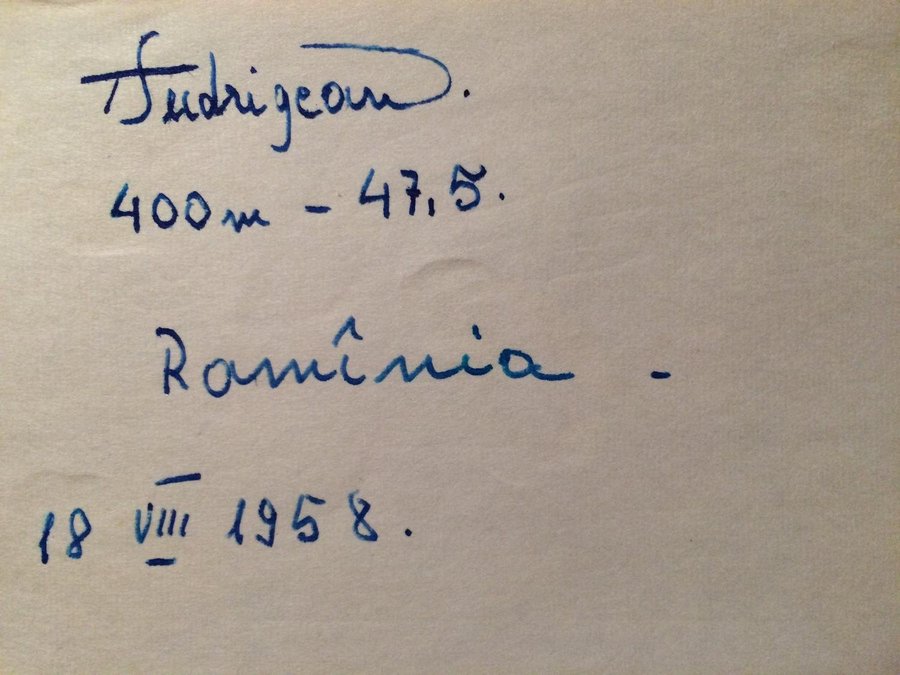 TSudrigean.
400m - 47,5.
Romînia -
18 VIII 1958.